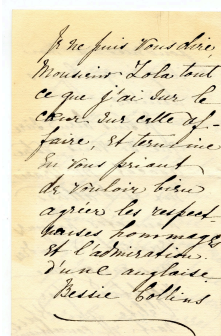 Je ne puis vous dire,
Monsieur Zola tout
ce que j'ai sur le
cœur sur cette af
faire, et termine
en vous priant
de vouloir bien
agréer les respect
ueuses hommages
et l'admiration
d'une anglaise
Bessie Collins